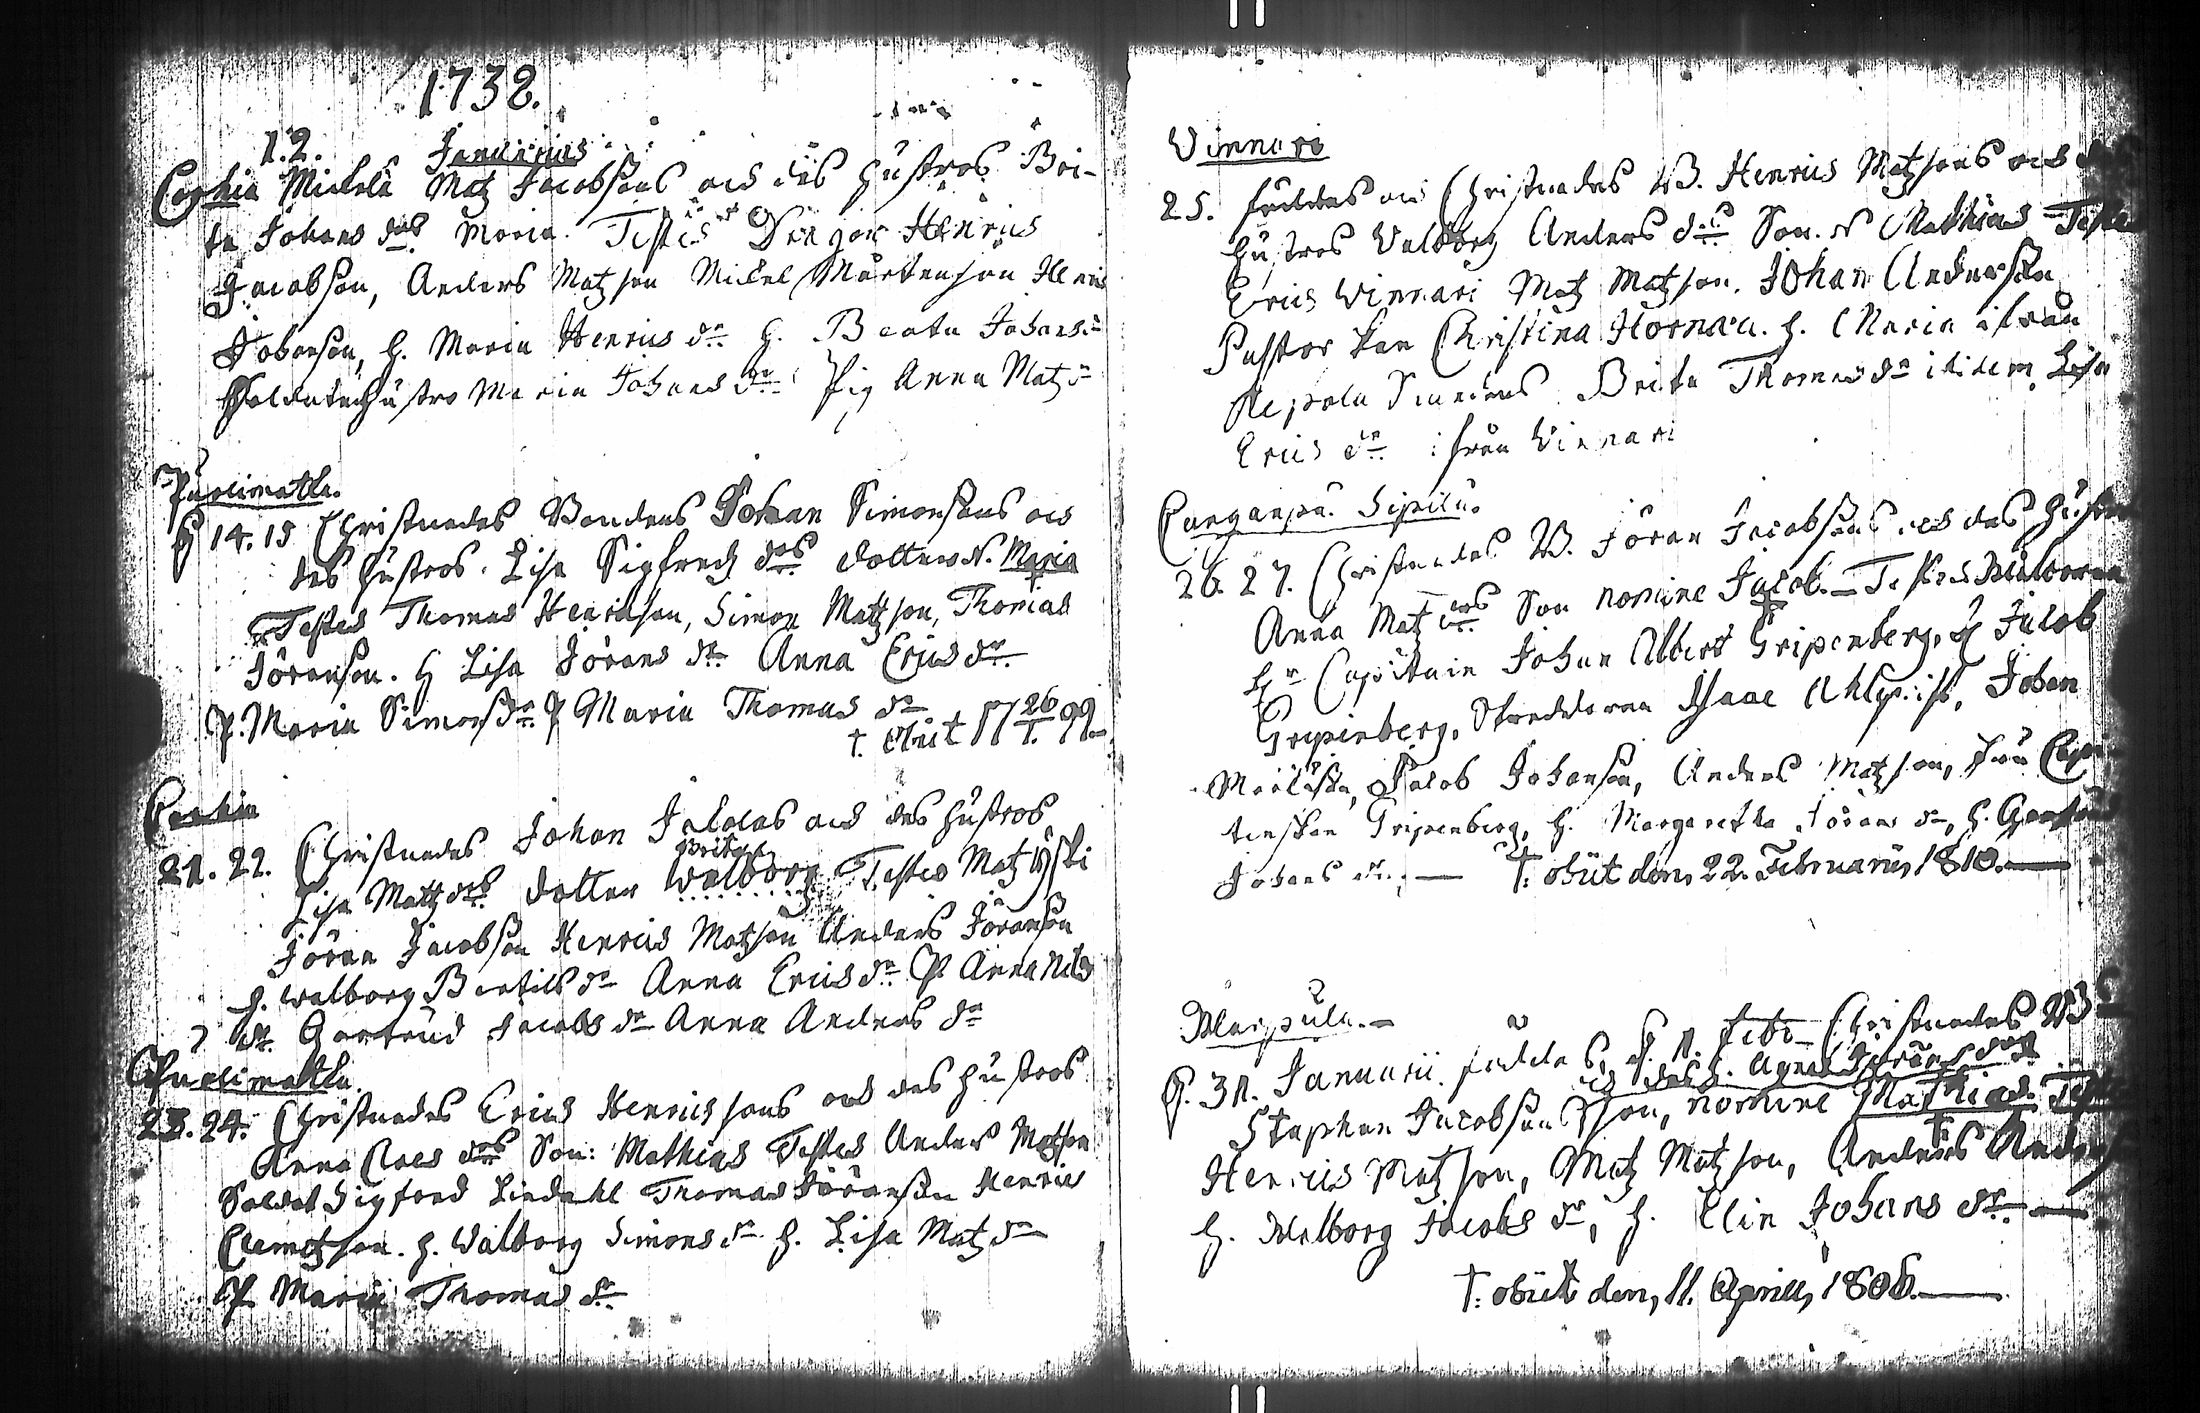 1738.
1.2. Januarius
Corhia Mickels Matz Jacobsons och des hustros Bri-
ta Johans dots Maria. Testes Drengar Henrics
Jacobson, Anders Matzson Mickel Mårtenson Henric
Johanson, h. Maria Henrics dr h. Beata Johans dr
Soldatens hustro Maria Johans dr Pig Anna Matz dr
Puolimatka.
f 14. 15 Christnades Bondens Johan Simonsons och
des hustros. Lisa Sigfredz dots dotter N. Maria
Testes Thomas Henrichson, Simon Matzson, Thomas
Jöranson. h Lisa Jörans dr Anna Erics dr
P. Maria Simons dr P Maria Thomas dr
† obiit 17 26/1. 99
21. 22. Christnades Johan och des hustros
Brita
Lisa Mattz dots dotter Walborg Testes Matz
Jöran Jacobson Henrics Matzson Anders Jöranson
h. Walborg Bertils dr Anna Erics dr P. Anna Nils
dr. Gertrud Jacobs dr Anna Anders dr
Puolimatka.
23. 24. Christnades Erics Henricssons och des hustros
Anna Claes dots Son: Mathias Testes Anders Matson
Soldat Sigfred Lindahl Thomas Jöranson Henric
Clemetzson. h. Walborg Simons dr h. Lisa Matz dr
P Maria Thomas dr
Winnari
25. föddes och Christnades B. Henrics Matzsons och
hustros Valborg Anders dots Son. N Mathias Testes
Erics Winnari Matz Matzson. Johan Anderson
Pastorskan Christina Hornæa. h. Maria ifrån
Brita Thomas dr ibidem Lisa
Erics dr ifrån Winnari
Sipilä.
26. 27. Christnades B. Jöran Jacobsons och des hustros
Anna Matz dots Son nomine Jacob. — Testes Wälborne
Hr Capitain Johan Albert Gripenberg, H Jacob
Gripenberg, Isaac Johan
Jacob Johanson, Anders Matzson, Fru Capi-
tenskan Gripenberg, h. Margaretha Jörans dr, h. Gertrud
Johans dr. — †. obiit den, 22. Februarii, 1810. —
f. 31. Januarii. föddes, d. 1. Febr. Christnades B
och des h. Agneta Jörans dots
Stephan Jacobsons son, nomine Mathias. Test
Henrics Matzson, Matz Matzson, Anders Anders
h. Walborg Jacobs dr, h. Elin Johans dr. —
†. obiit den, 11. Aprill, 1806. —